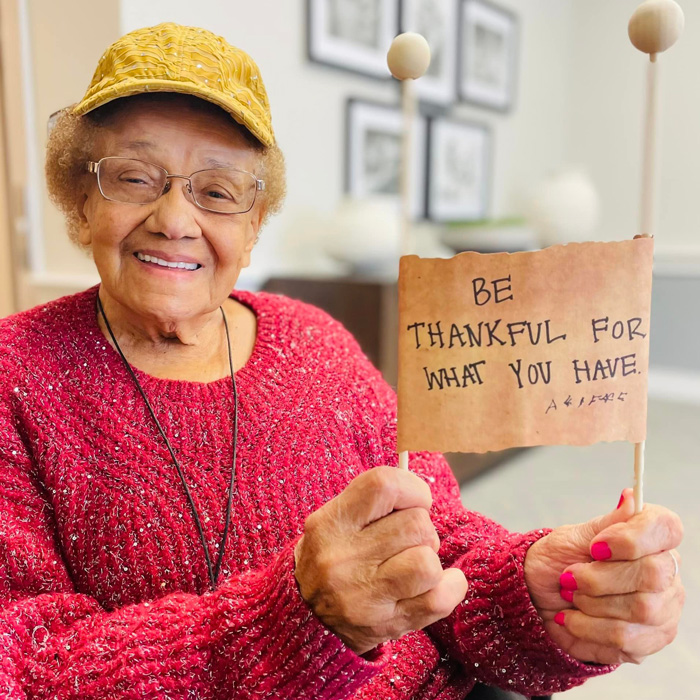 BE
THANKFUL FOR
WHAT YOU HAVE.